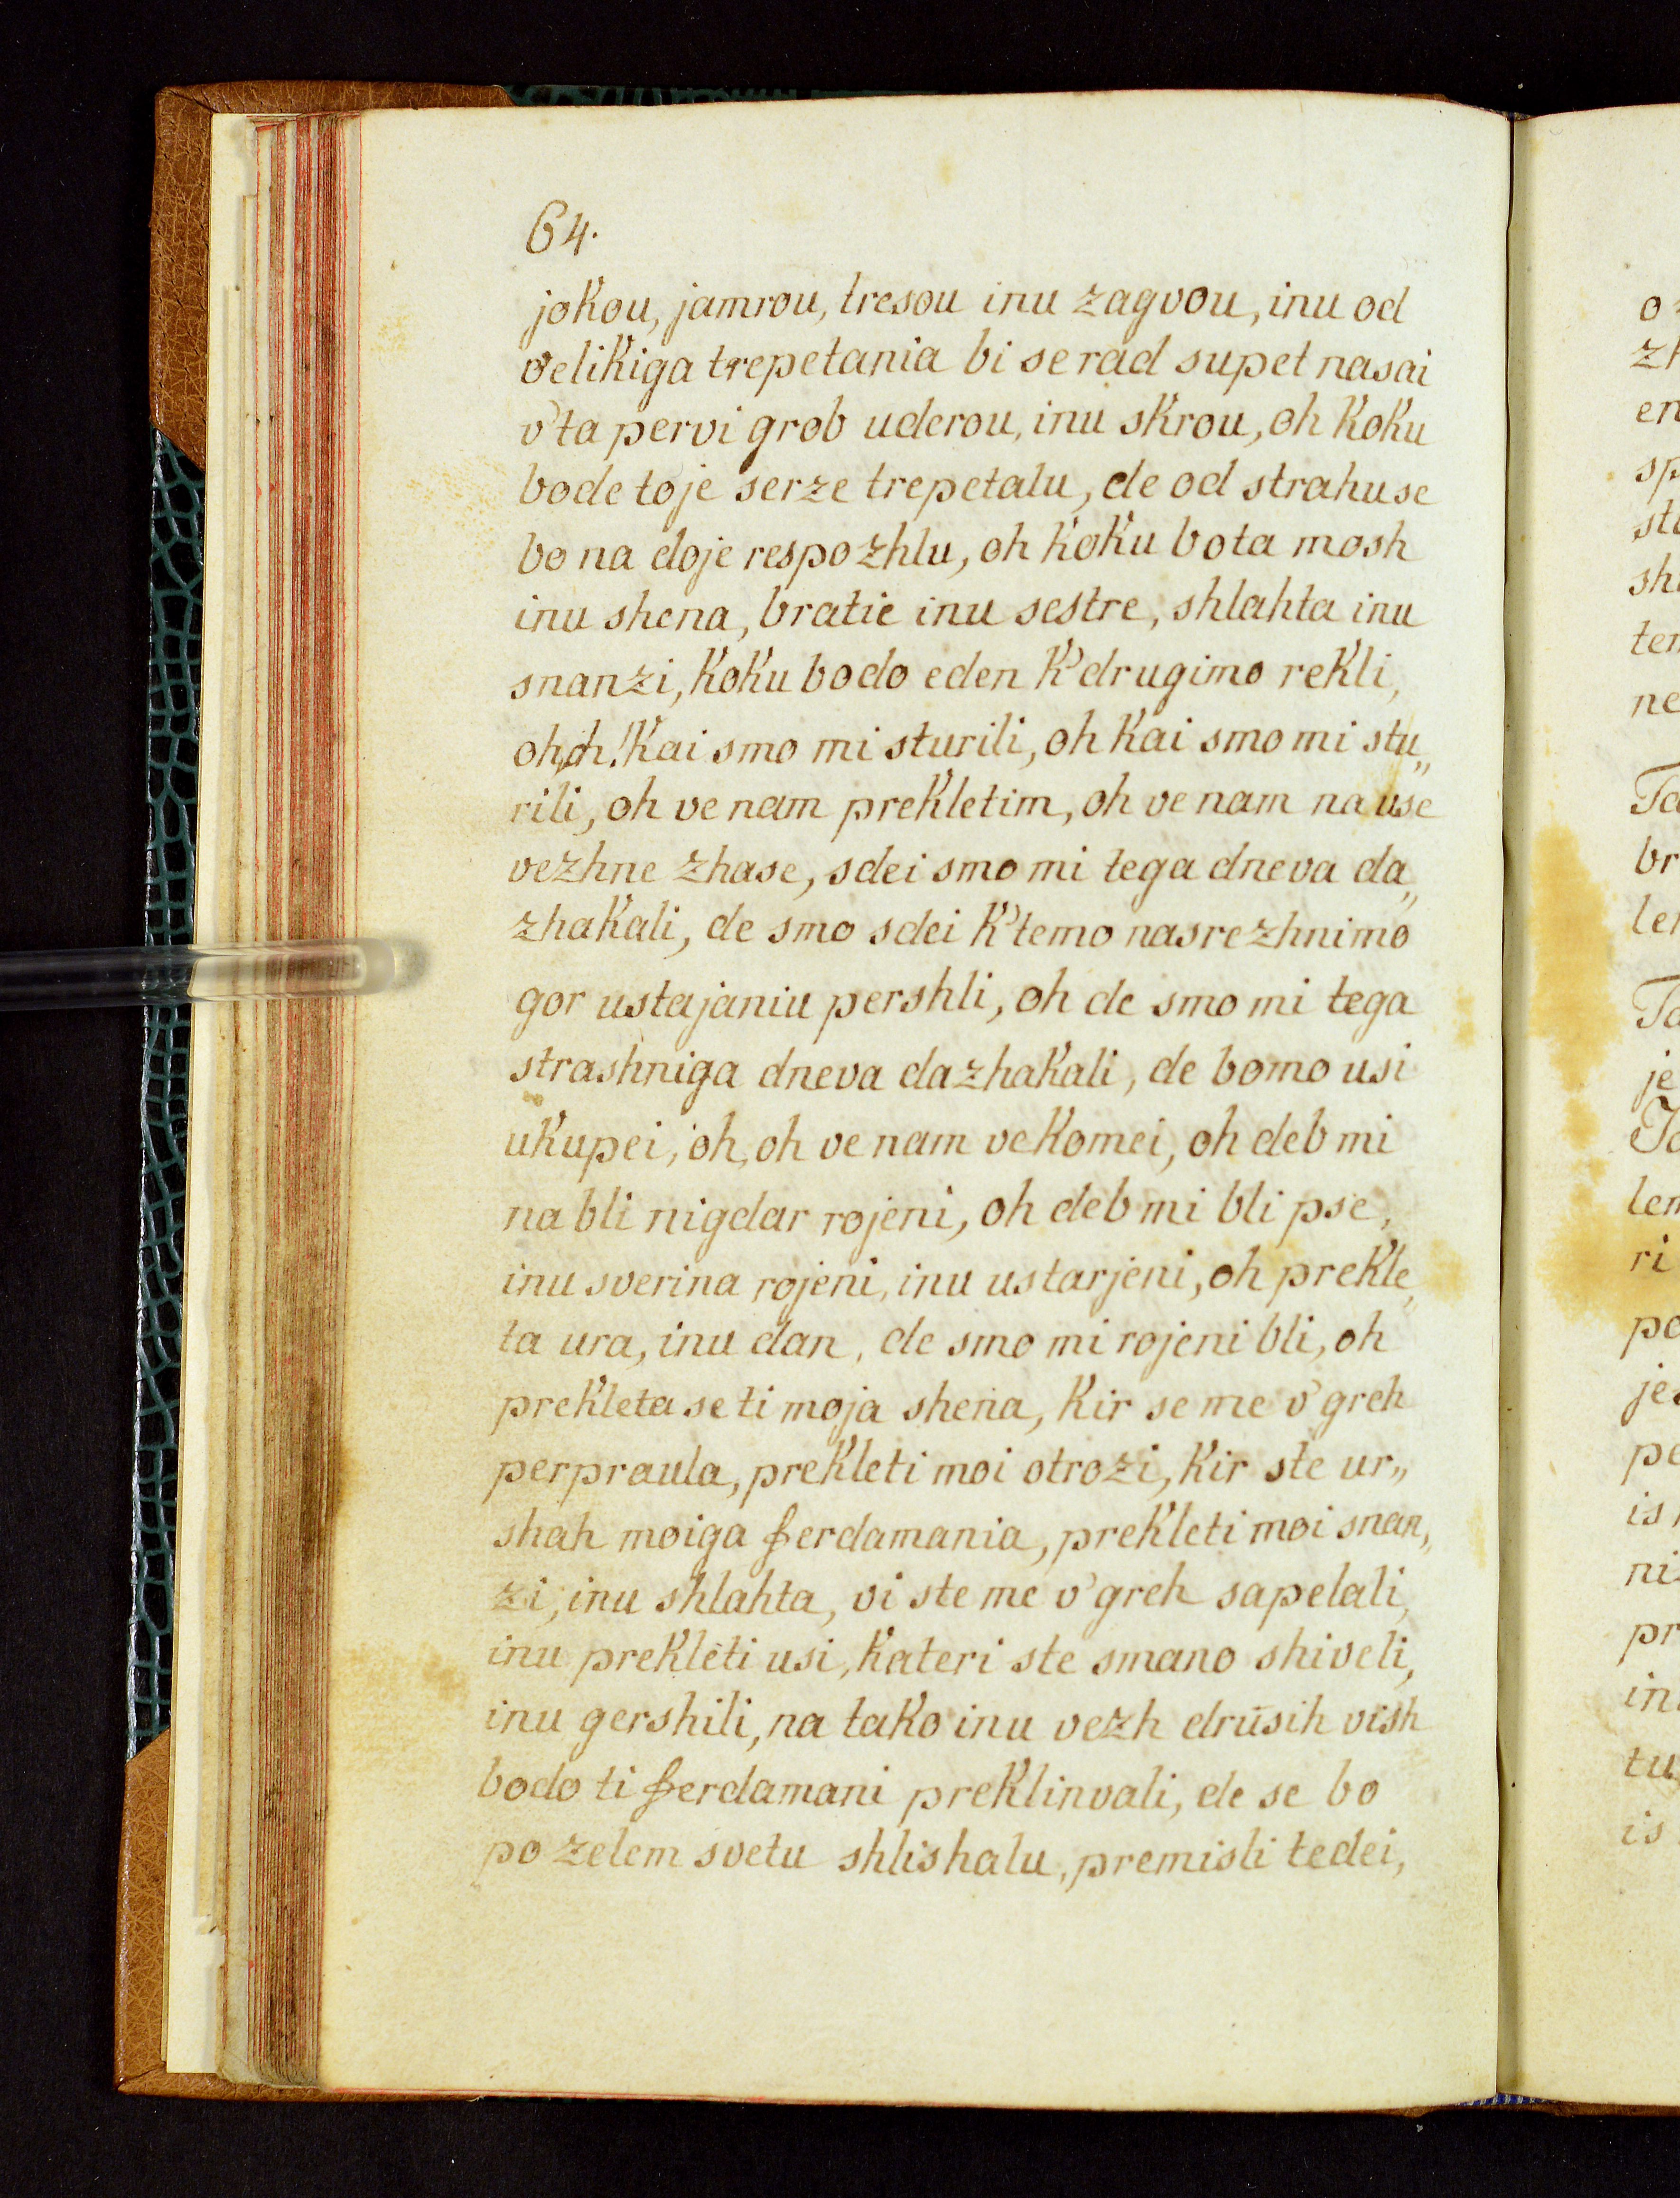 64.
jokou, jamrou, tresou inu zagvou, inu od
velikiga trepetania bi se rad supet nasai
v'ta pervi grob uderou, inu skrou, oh koku
bode toje serze trepetalu, de od strahu se
bo na doje respozhlu, oh koku bota mosh
inu shena, bratie inu sestre, shlahta inu
snanzi, koku bodo eden k'drugimo rekli,
oh, oh! kai smo mi sturili, oh kai smo mi stu„
rili, oh ve nam prekletim, oh ve nam na use
vezhne zhase, sdei smo mi tega dneva da„
zhakali, de smo sdei k'temo nasrezhnimo
gor ustajaniu pershli, oh de smo mi tega
strashniga dneva dazhakali, de bomo usi
ukupei, oh, oh ve nam vekomei, oh deb mi
na bli nigdar rojeni, oh deb mi bli pse,
inu sverina rojeni, inu ustarjeni, oh prekle„
ta ura, inu dan, de smo mi rojeni bli, oh
prekleta se ti moja shena, kir se me v'greh
perpraula, prekleti moi otrozi, kir ste ur„
shah moiga ferdamania, prekleti moi snan„
zi, inu shlahta, vi ste me v'greh sapelali,
inu prekleti usi, kateri ste smano shiveli,
inu gershili, na tako inu vezh drusih vish
bodo ti ferdamani preklinvali, de se bo
po zelem svetu shlishalu, premisli tedei,